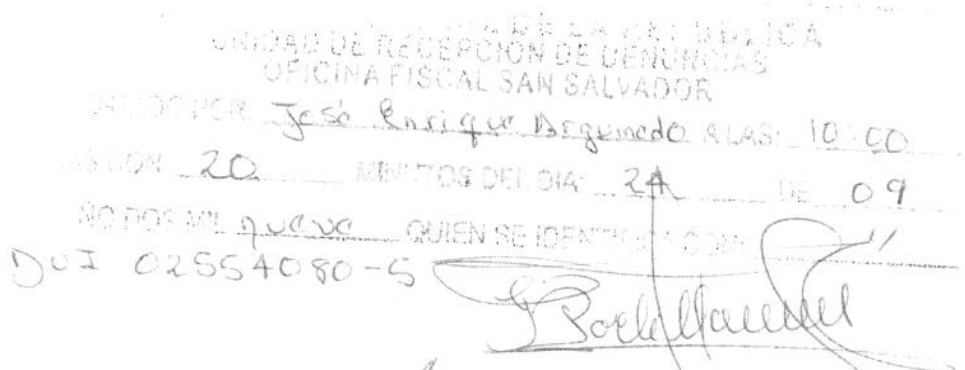 DE LA REPUBLICA
UNIDAD DE RECEPCION DE DENUNCIAS
OFICINA FISCAL SAN SALVADOR
POR: José Enrique Argumedo A LAS: 10:00
AS CON 20 MINUTOS DEL DIA 24 DE 09
ÑO DOS MIL nueve QUIEN SE IDENTIFICA CON:
DUI 02554080-5